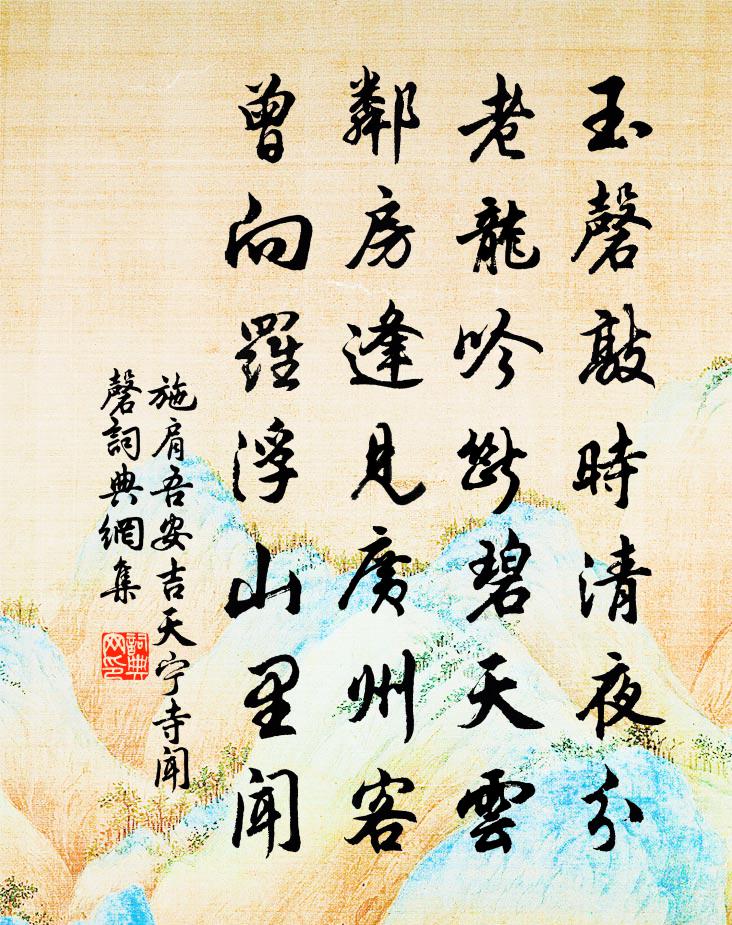 玉磬敲時清夜分
老龍吟斷碧天雲
鄰房逢見廣州客
曾向羅浮山里聞
施肩吾安吉天宁寺聞
磬詞典網集
詞典网印